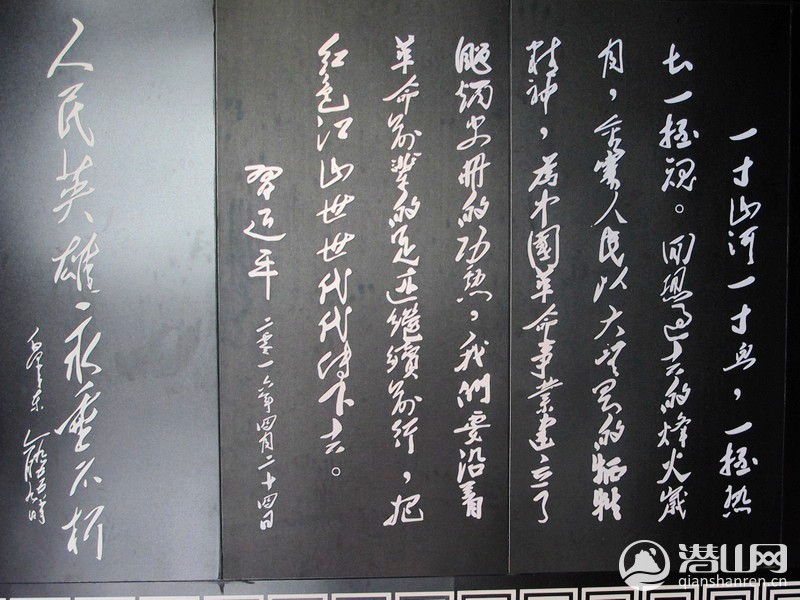 一寸山河一寸血，一抔热
土一抔魂。回想过去的烽火歲
月，金寨人民以大无畏的牺牲
精神，为中國革命事業建立了
彪炳史册的功勋，我们要沿着
革命前辈的足迹繼續前行，把
红色江山世世代代传下去。
習近平 二零一六年四月二十四日
人民英雄永垂不朽
毛泽东
潜山网
qianshanren.cn